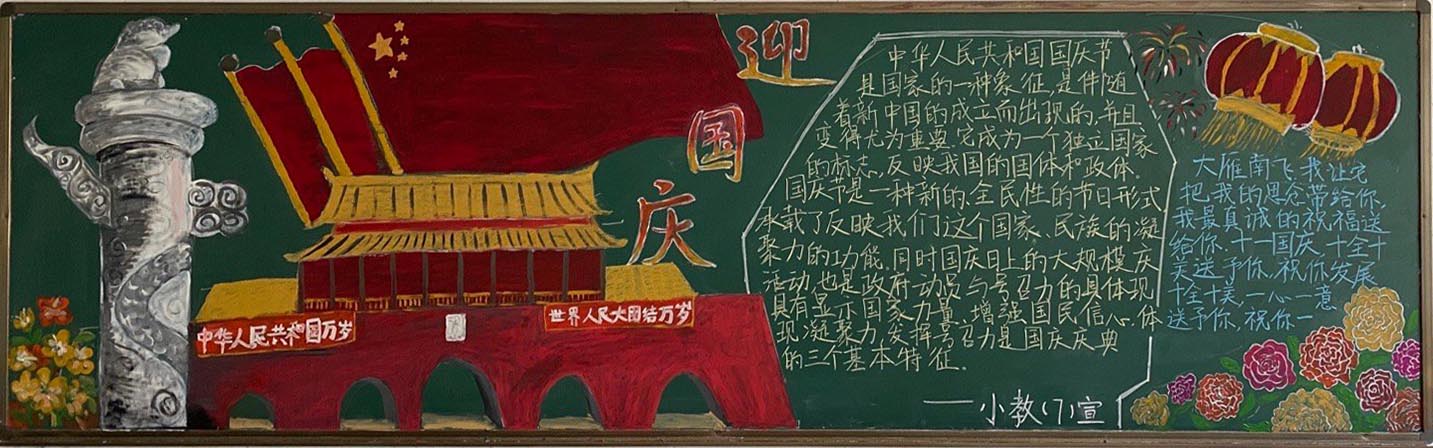 迎
国
庆
中华人民共和国万岁
世界人民大团结万岁
中华人民共和国国庆节
是国家的一种象征,是伴随
着新中国的成立而出现的,并且
变得尤为重要.它成为一个独立国家
的标志,反映我国的国体和政体。
国庆节是一种新的、全民性的节日形式
承载了反映我们这个国家、民族的凝
聚力的功能.同时国庆日上的大规模庆
活动,也是政府动员与号召力的具体现
具有显示国家力量、增强国民信心,体
现凝聚力,发挥号召力是国庆庆典
的三个基本特征。
——小教(7)宣
大雁南飞,我让它
把我的思念带给你,
我最真诚的祝福送
给你,十一国庆,十全十
美送予你,祝你发展
十全十美,一心一意
送予你,祝你一